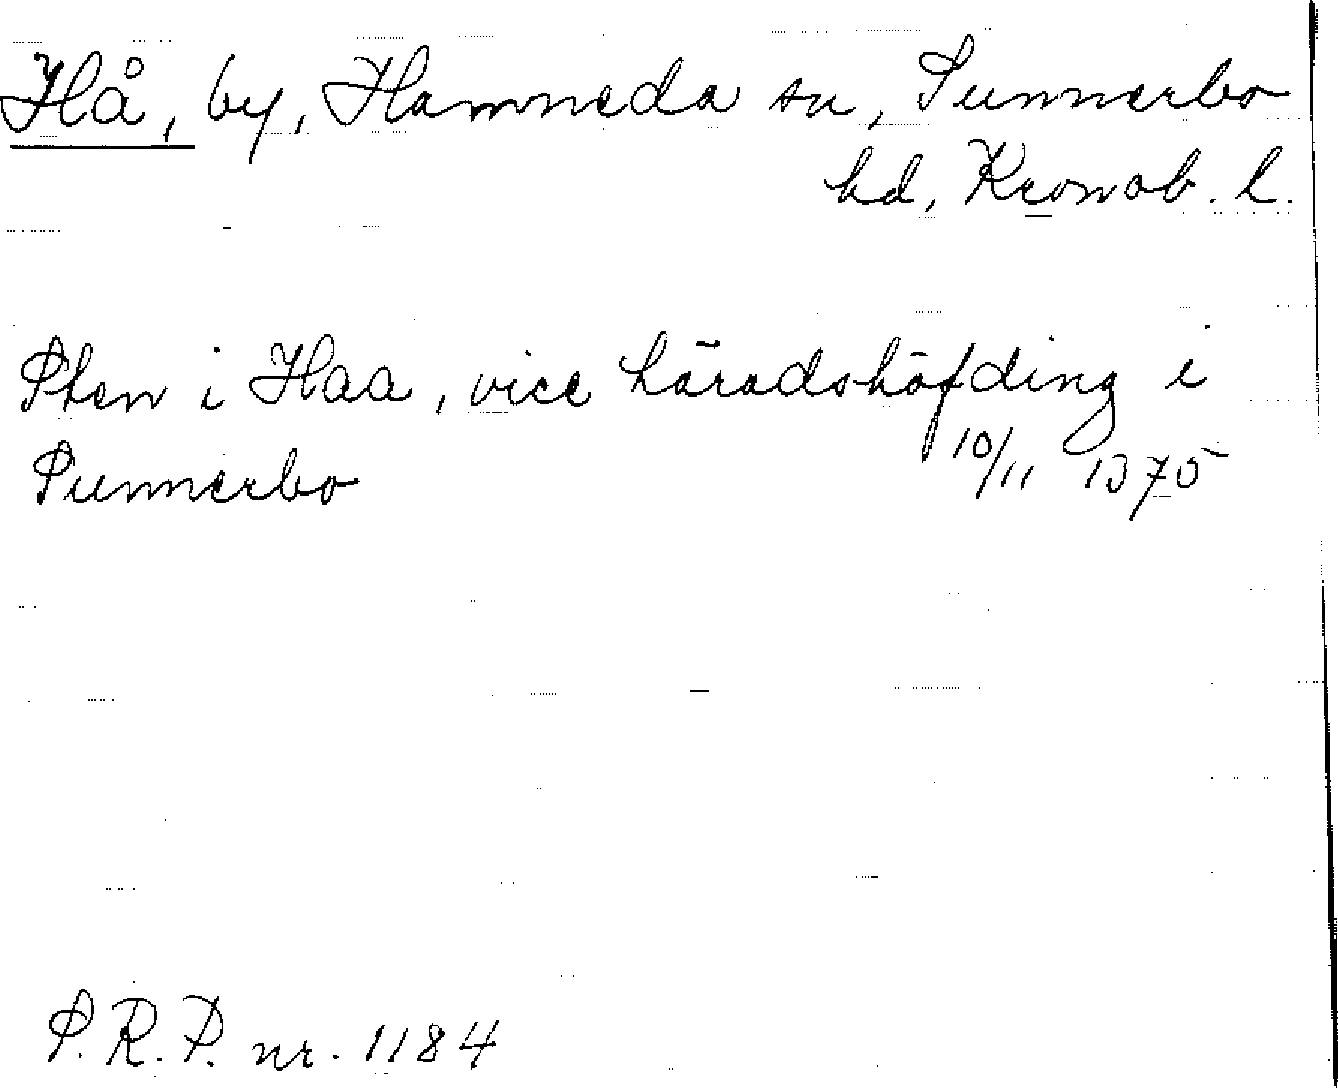 Hå, by, Hamneda sn, Sunnerbo
hd, Kronob. l.
Sten i Haa, vice häradshöfding i
Sunnerbo 10/11 1375
S. R. P. nr. 1184